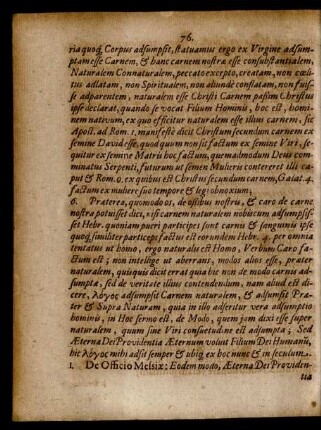 76.
ria quod Corpus adsumpsit, statuamus ergo ex Virgine adsum-
ptam esse Carnem, & hanc carnem nostræ esse consubstantialem,
Naturalem Connaturalem, peccato excepto, creatam, non cœli-
tus adlatam, non Spiritualem, non aliunde conflatam, non fuis-
se adparentem, naturalem esse Christi Carnem passim Christus
ipse declarat, quando se vocat Filium Hominis, hoc est, homi-
nem nativum, ex quo efficitur naturalem esse illius carnem, sic
Apost. ad Rom. 1. manifestè dicit Christum secundum carnem ex
semine David esse, quod quum non sit factum ex semine Viri, se-
quitur ex semine Matris hoc factum, quemadmodum Deus com-
minatus Serpenti, futurum ut semen Mulieris contereret illi ca-
put & Rom. 9. ex quibus est Christus secundum carnem, Galat. 4.
factum ex muliere suo tempore & legi obnoxium,
6. Præterea, quomodo os, de ossibus nostris, & caro de carne
nostra potuisset dici, nisi carnem naturalem nobiscum adsumpsis-
set Hebr. quoniam pueri participes sunt carnis & sanguinis ipse
quoq; similiter particeps factus est eorundem Hebr. 4. per omnia
tentatus ut homo, ergo naturalis est Homo, Verbum Caro fa-
ctum est; non intellige ut aberrans, molos alios esse, præter
naturalem, quisquis dicit errat quia hic non de modo carnis ad-
sumpta, sed de veritate illius contendendum, nam aliud est di-
cere, λόγος adsumpsit Carnem naturalem, & adsumsit Præ-
ter & Supra Naturam, quia in illo adseritur vera adsumptio
hominis, in Hoc sermo est, de Modo, quem jam dixi esse super
naturalem, quum sine Viri consuetudine est adsumpta; Sed
Æterna Dei Providentia Æternum voluit Filium Dei Humanū,
hic λόγος mihi adsit semper & ubiq; ex hoc nunc & in seculum.
1. De Officio Messiæ: Eodem modo, Æterna Dei Providen-
tia